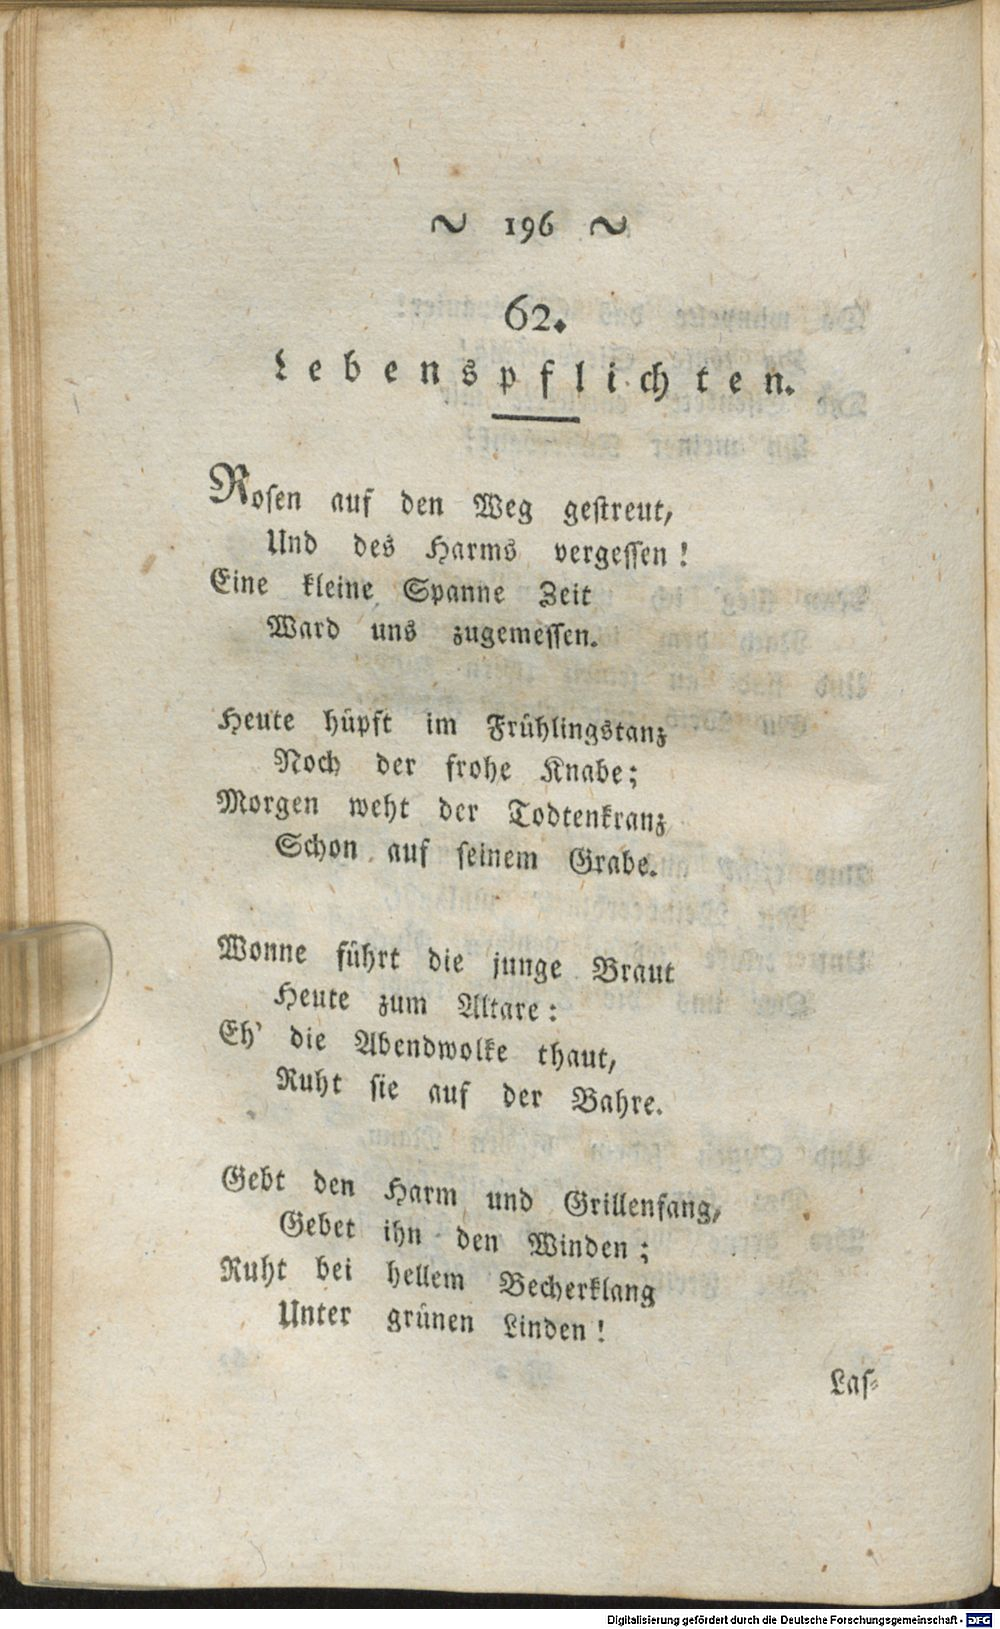 ~ 196 ~
62.
Lebenspflichten.
Rosen auf den Weg gestreut,
Und des Harms vergessen!
Eine kleine Spanne Zeit
Ward uns zugemessen.
Heute hüpft im Frühlingstanz
Noch der frohe Knabe;
Morgen weht der Todtenkranz
Schon auf seinem Grabe.
Wonne führt die junge Braut
Heute zum Altare:
Eh' die Abendwolke thaut,
Ruht sie auf der Bahre.
Gebt den Harm und Grillenfang,
Gebet ihn den Winden;
Ruht bei hellem Becherklang
Unter grünen Linden!
Las-
Digitalisierung gefördert durch die Deutsche Forschungsgemeinschaft - DFG